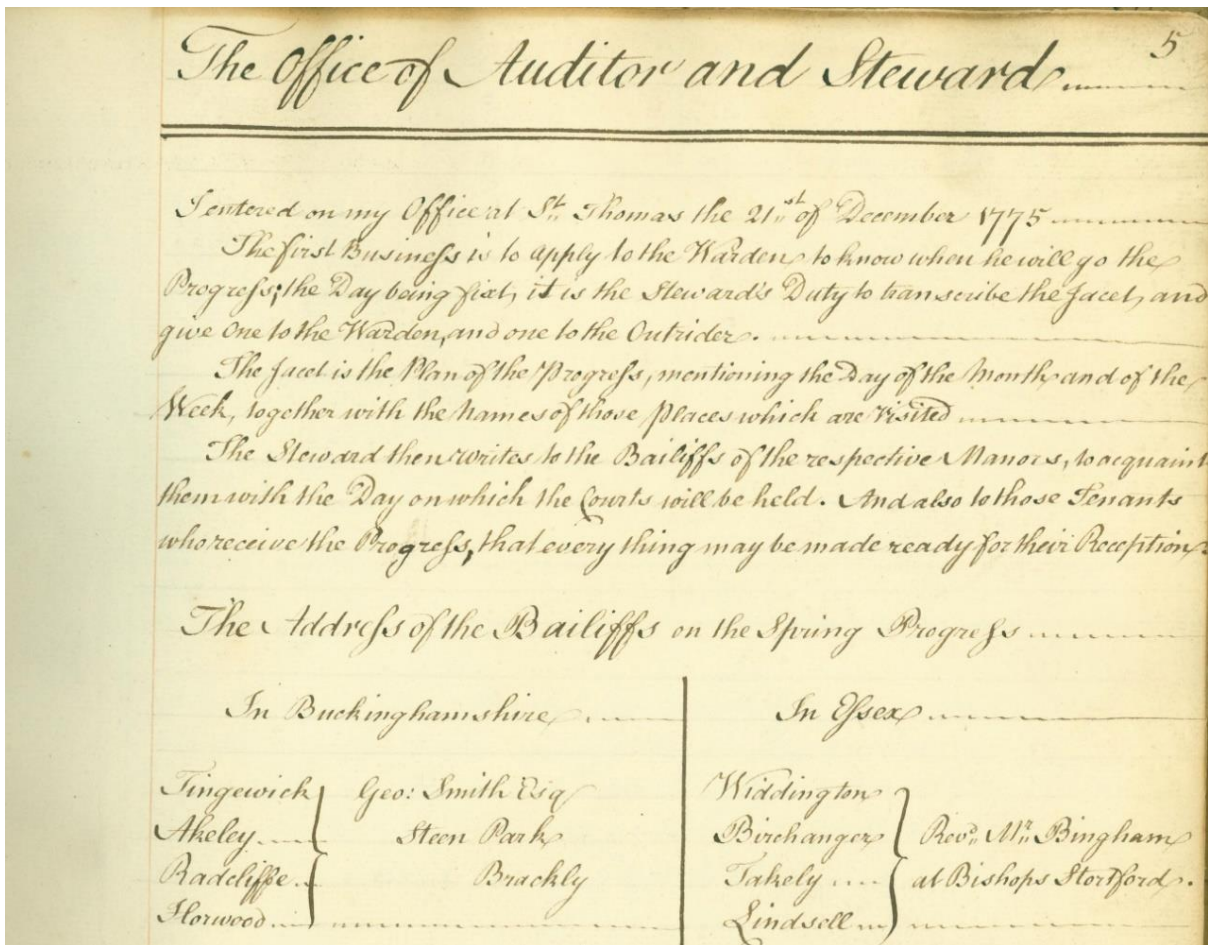 5
The Office of Auditor and Steward
I entered on my Office at St. Thomas the 21st of December 1775
The first Business is to apply to the Warden to know when he will go the
Progress; the Day being fixt, it is the Steward's Duty to transcribe the Jacet, and
give One to the Warden, and one to the Outrider.
The Jacet is the Plan of the Progress, mentioning the Day of the Month and of the
Week, together with the Names of those Places which are Visited
The Steward then writes to the Bailiffs of the respective Manors, to acquaint
them with the Day on which the Courts will be held. And also to those Tenants
who receive the Progress, that every thing may be made ready for their Reception
The Address of the Bailiffs on the Spring Progress
In Buckinghamshire
Tingewick
Akeley
Radcliffe
Horwood
Geo: Smith Esq
Steen Park
Brackly
In Essex
Widdington
Birchanger
Takely
Lindsell
Revd. Mr. Bingham
at Bishops Stortford.